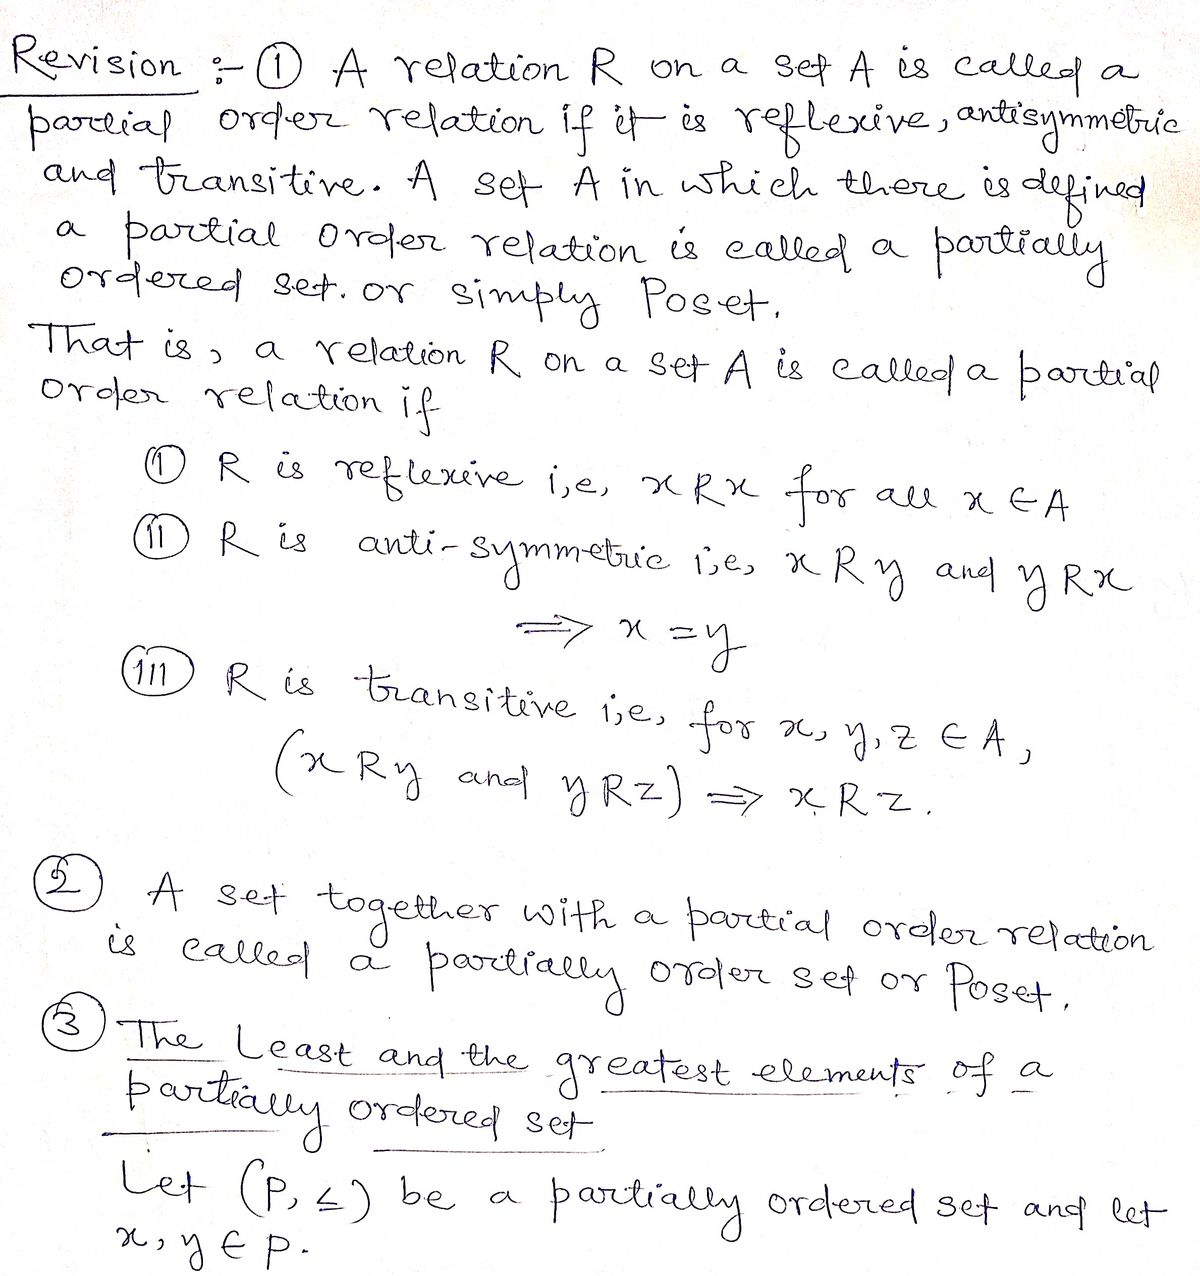 Revision :- ① A relation R on a set A is called a
partial order relation if it is reflexive, antisymmetric
and transitive. A set A in which there is defined
a partial order relation is called a partially
ordered set. or simply Poset.
That is, a relation R on a set A is called a partial
order relation if
(i) R is reflexive i,e, x R x for all x ∈ A
(ii) R is anti-symmetric i,e, x R y and y R x
⟹ x = y
(iii) R is transitive i,e, for x, y, z ∈ A,
(x R y and y R z) ⟹ x R z.
② A set together with a partial order relation
is called a partially order set or Poset.
③ The Least and the greatest elements of a
partially ordered set
Let (P, ≤) be a partially ordered set and let
x, y ∈ P.